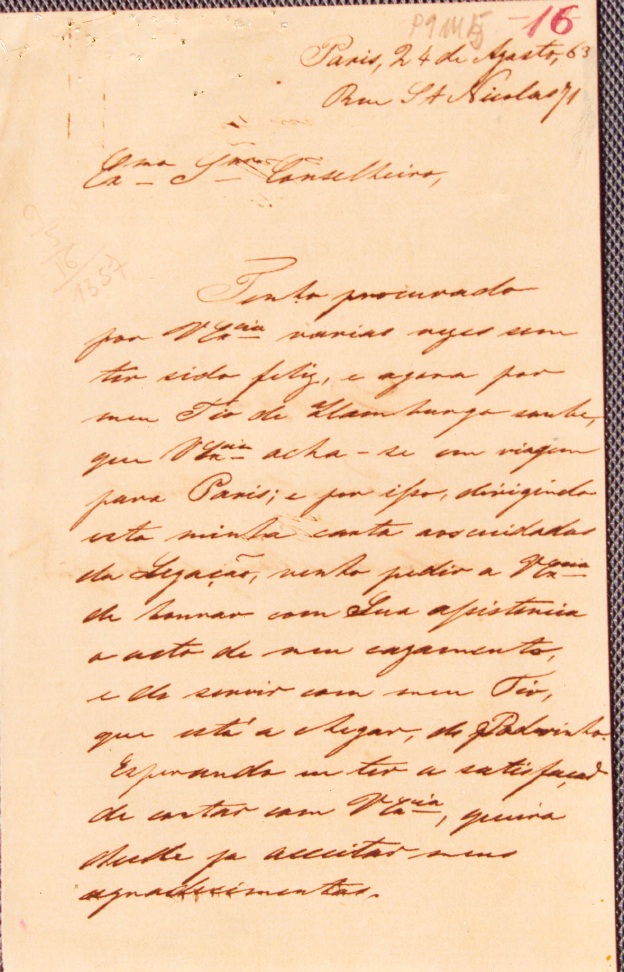 P9M5 -16
Paris, 24 de Agosto, 63
Rue St Nicolas 71
Exmo Snr Conselheiro,
16
1357
Tenho procurado
por VExcia varias vezes sem
ter sido feliz, e agora por
meu Tio de Hamburgo soube,
que VExcia acha-se em viagem
para Paris; e por isso, dirigindo
esta minha carta aos cuidados
da Legação, venho pedir a VExcia
de honrar com Sua assistencia
o acto de meu cazamento,
e de servir com meu Tio,
que está a chegar, de Padrinho.
Esperando eu ter a satisfação
de contar com VExcia, queira
desde ja acceitar meus
agradecimentos.